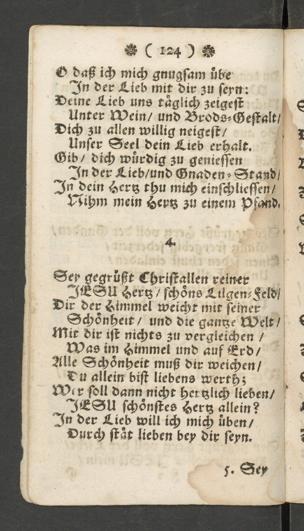 ❁ ( 124 ) ❁
O daß ich mich gnugsam übe
In der Lieb mit dir zu seyn:
Deine Lieb uns täglich zeigest
Unter Wein/ und Brods-Gestalt/
Dich zu allen willig neigest/
Unser Seel dein Lieb erhalt.
Gib/ dich würdig zu geniessen
In der Lieb/und Gnaden-Stand/
In dein Hertz thu mich einschliessen/
Nihm mein Hertz zu einem Pfand.
4.
Sey gegrüßt Christallen reiner
JESU Hertz/ schöns Lilgen-Feld/
Dir der Himmel weicht mit seiner
Schönheit/ und die gantze Welt/
Mit dir ist nichts zu vergleichen/
Was im Himmel und auf Erd/
Alle Schönheit muß dir weichen/
Du allein bist liebens werth;
Wer soll dann nicht hertzlich lieben/
JESU schönstes Hertz allein?
In der Lieb will ich mich üben/
Durch stät lieben bey dir seyn.
5. Sey